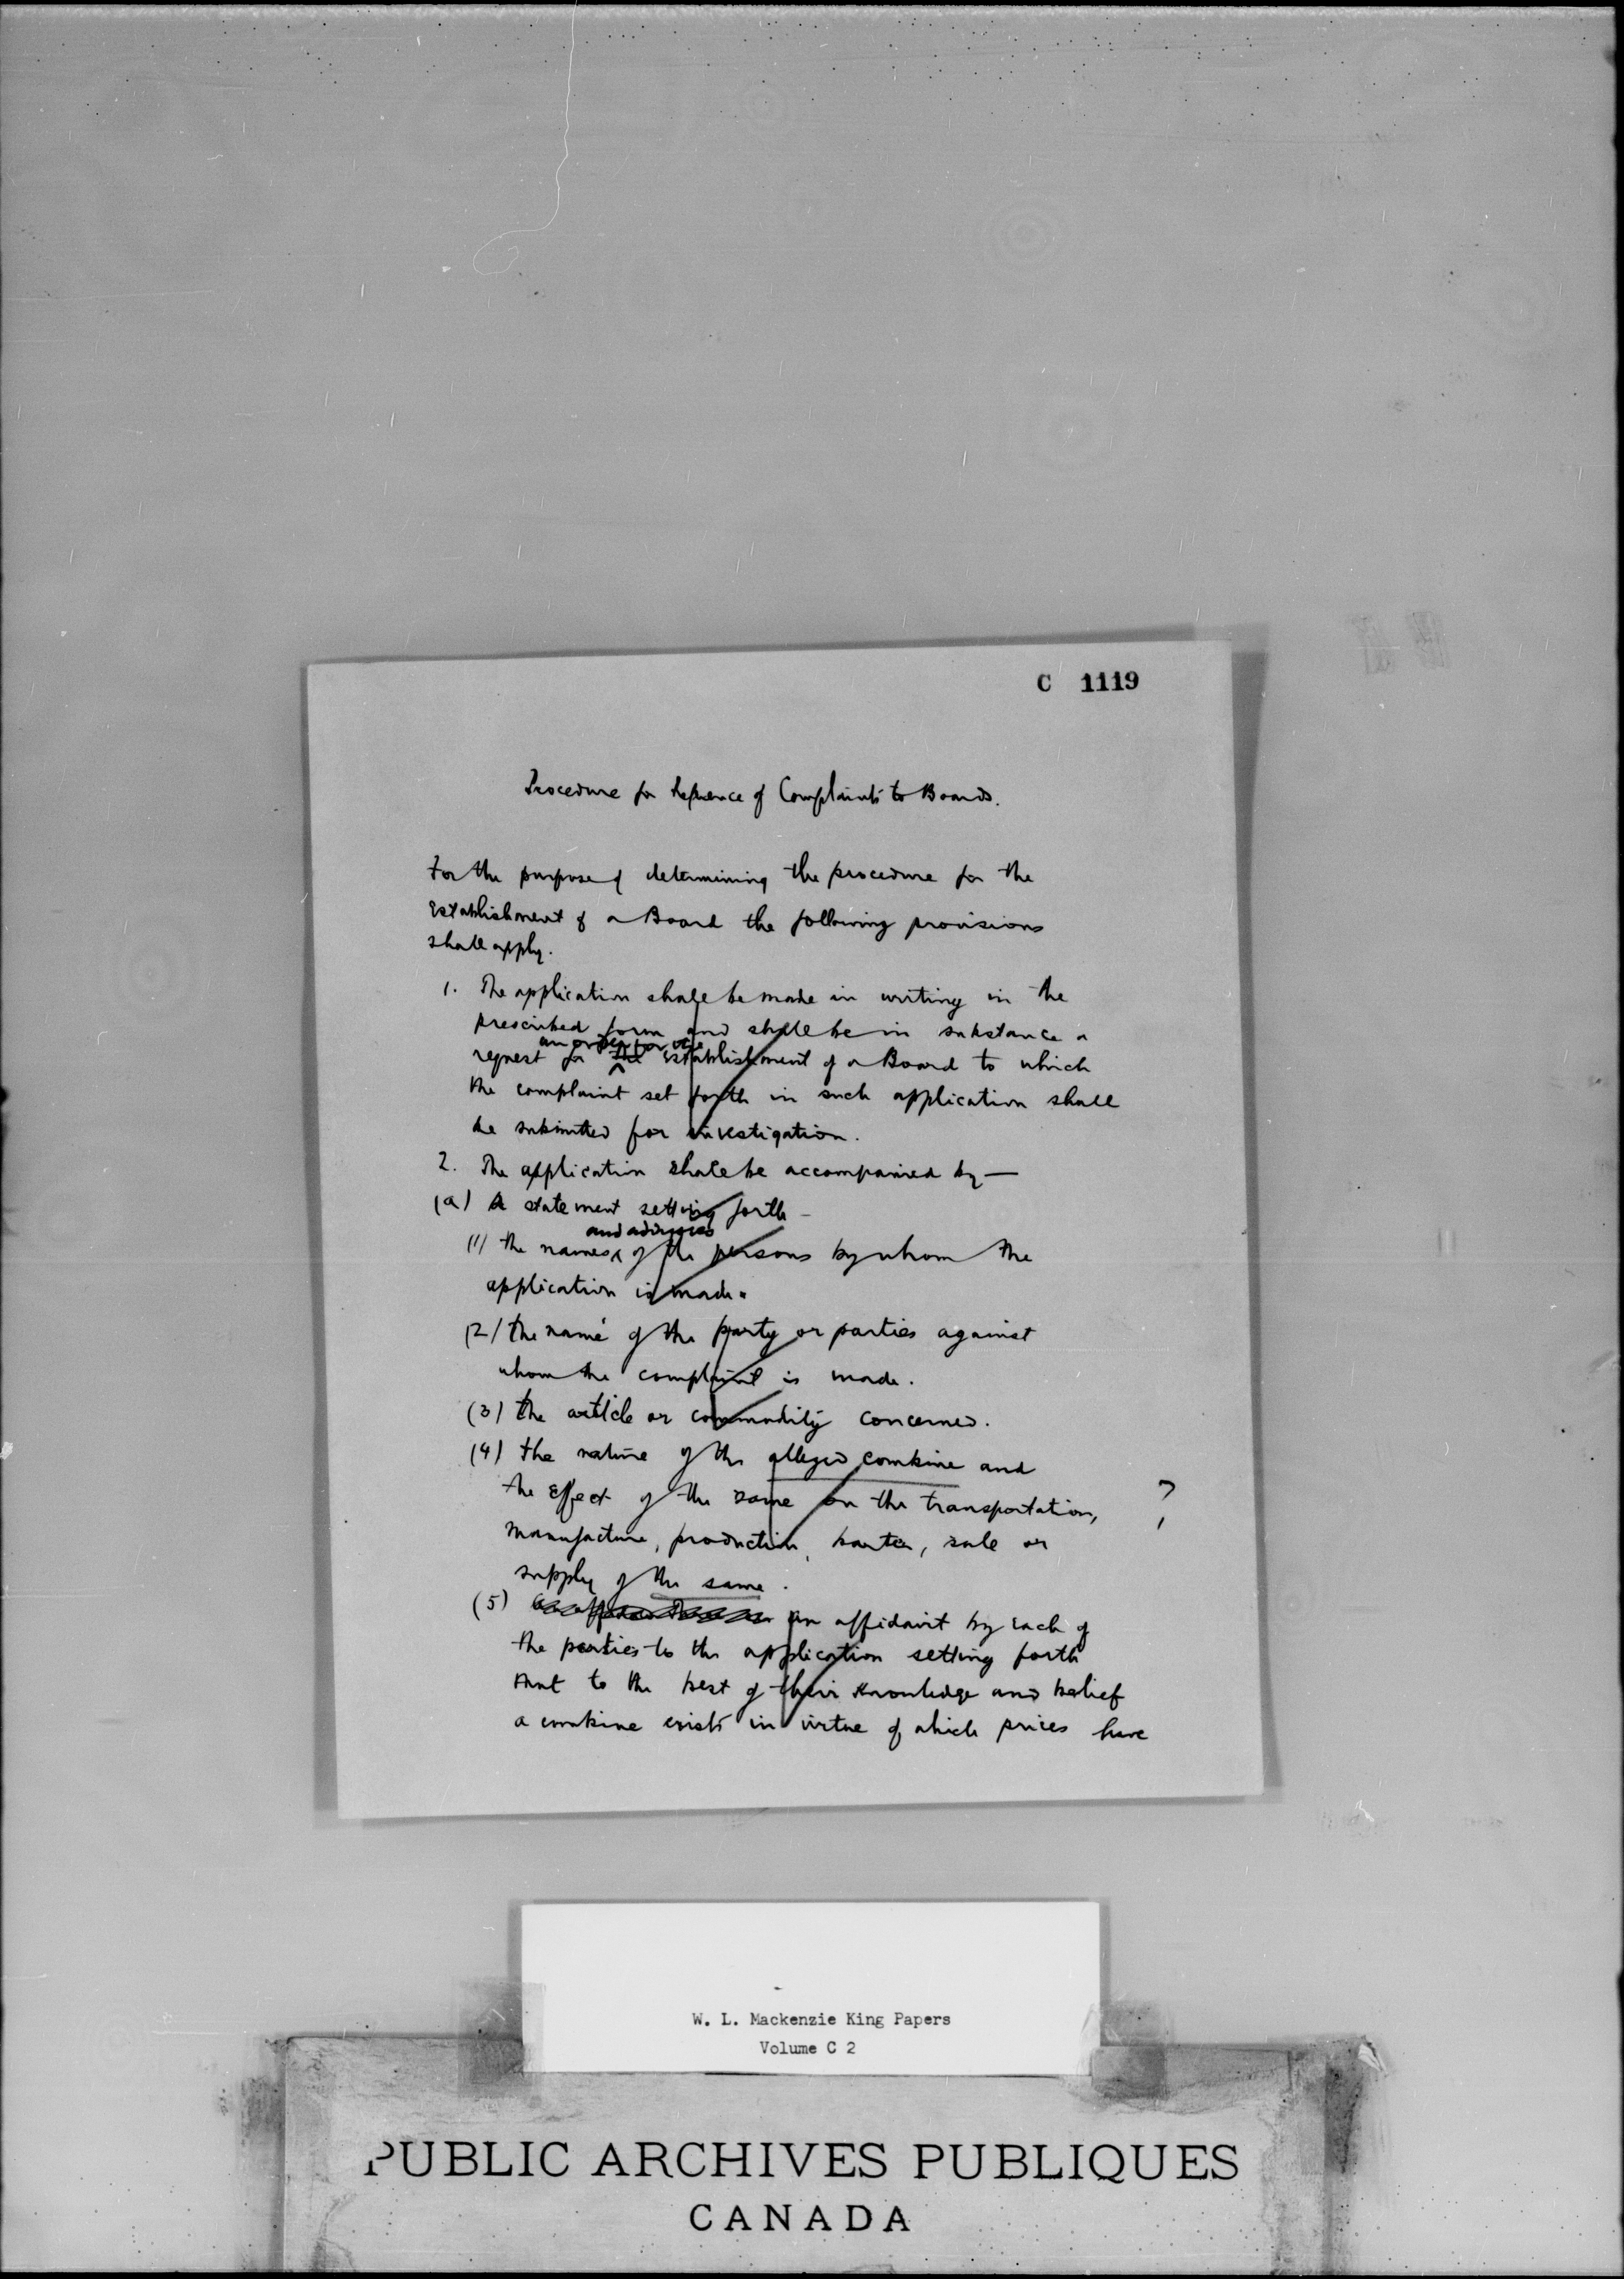 C 1119
Procedure for Reference of Complaints to Boards.
For the purpose of determining the procedure for the
Establishment of a Board the following provisions
shall apply.
1. The application shall be made in writing in the
prescribed form and shall be in substance a
an order for the
request for the Establishment of a Board to which
the complaint set forth in such application shall
be submitted for investigation.
2. The application shall be accompanied by —
(a) A statement setting forth —
and addresses
(1) the names of the persons by whom the
application is made.
(2) the name of the party or parties against
whom the complaint is made.
(3) the article or commodity concerned.
(4) the nature of the alleged combine and
the effect of the same on the transportation, ?
manufacture, production, barter, sale or
supply of the same.
(5) an affidavit by each of
the parties to the application setting forth
that to the best of their knowledge and belief
a combine exists in virtue of which prices have
W. L. Mackenzie King Papers
Volume C 2
PUBLIC ARCHIVES PUBLIQUES
CANADA